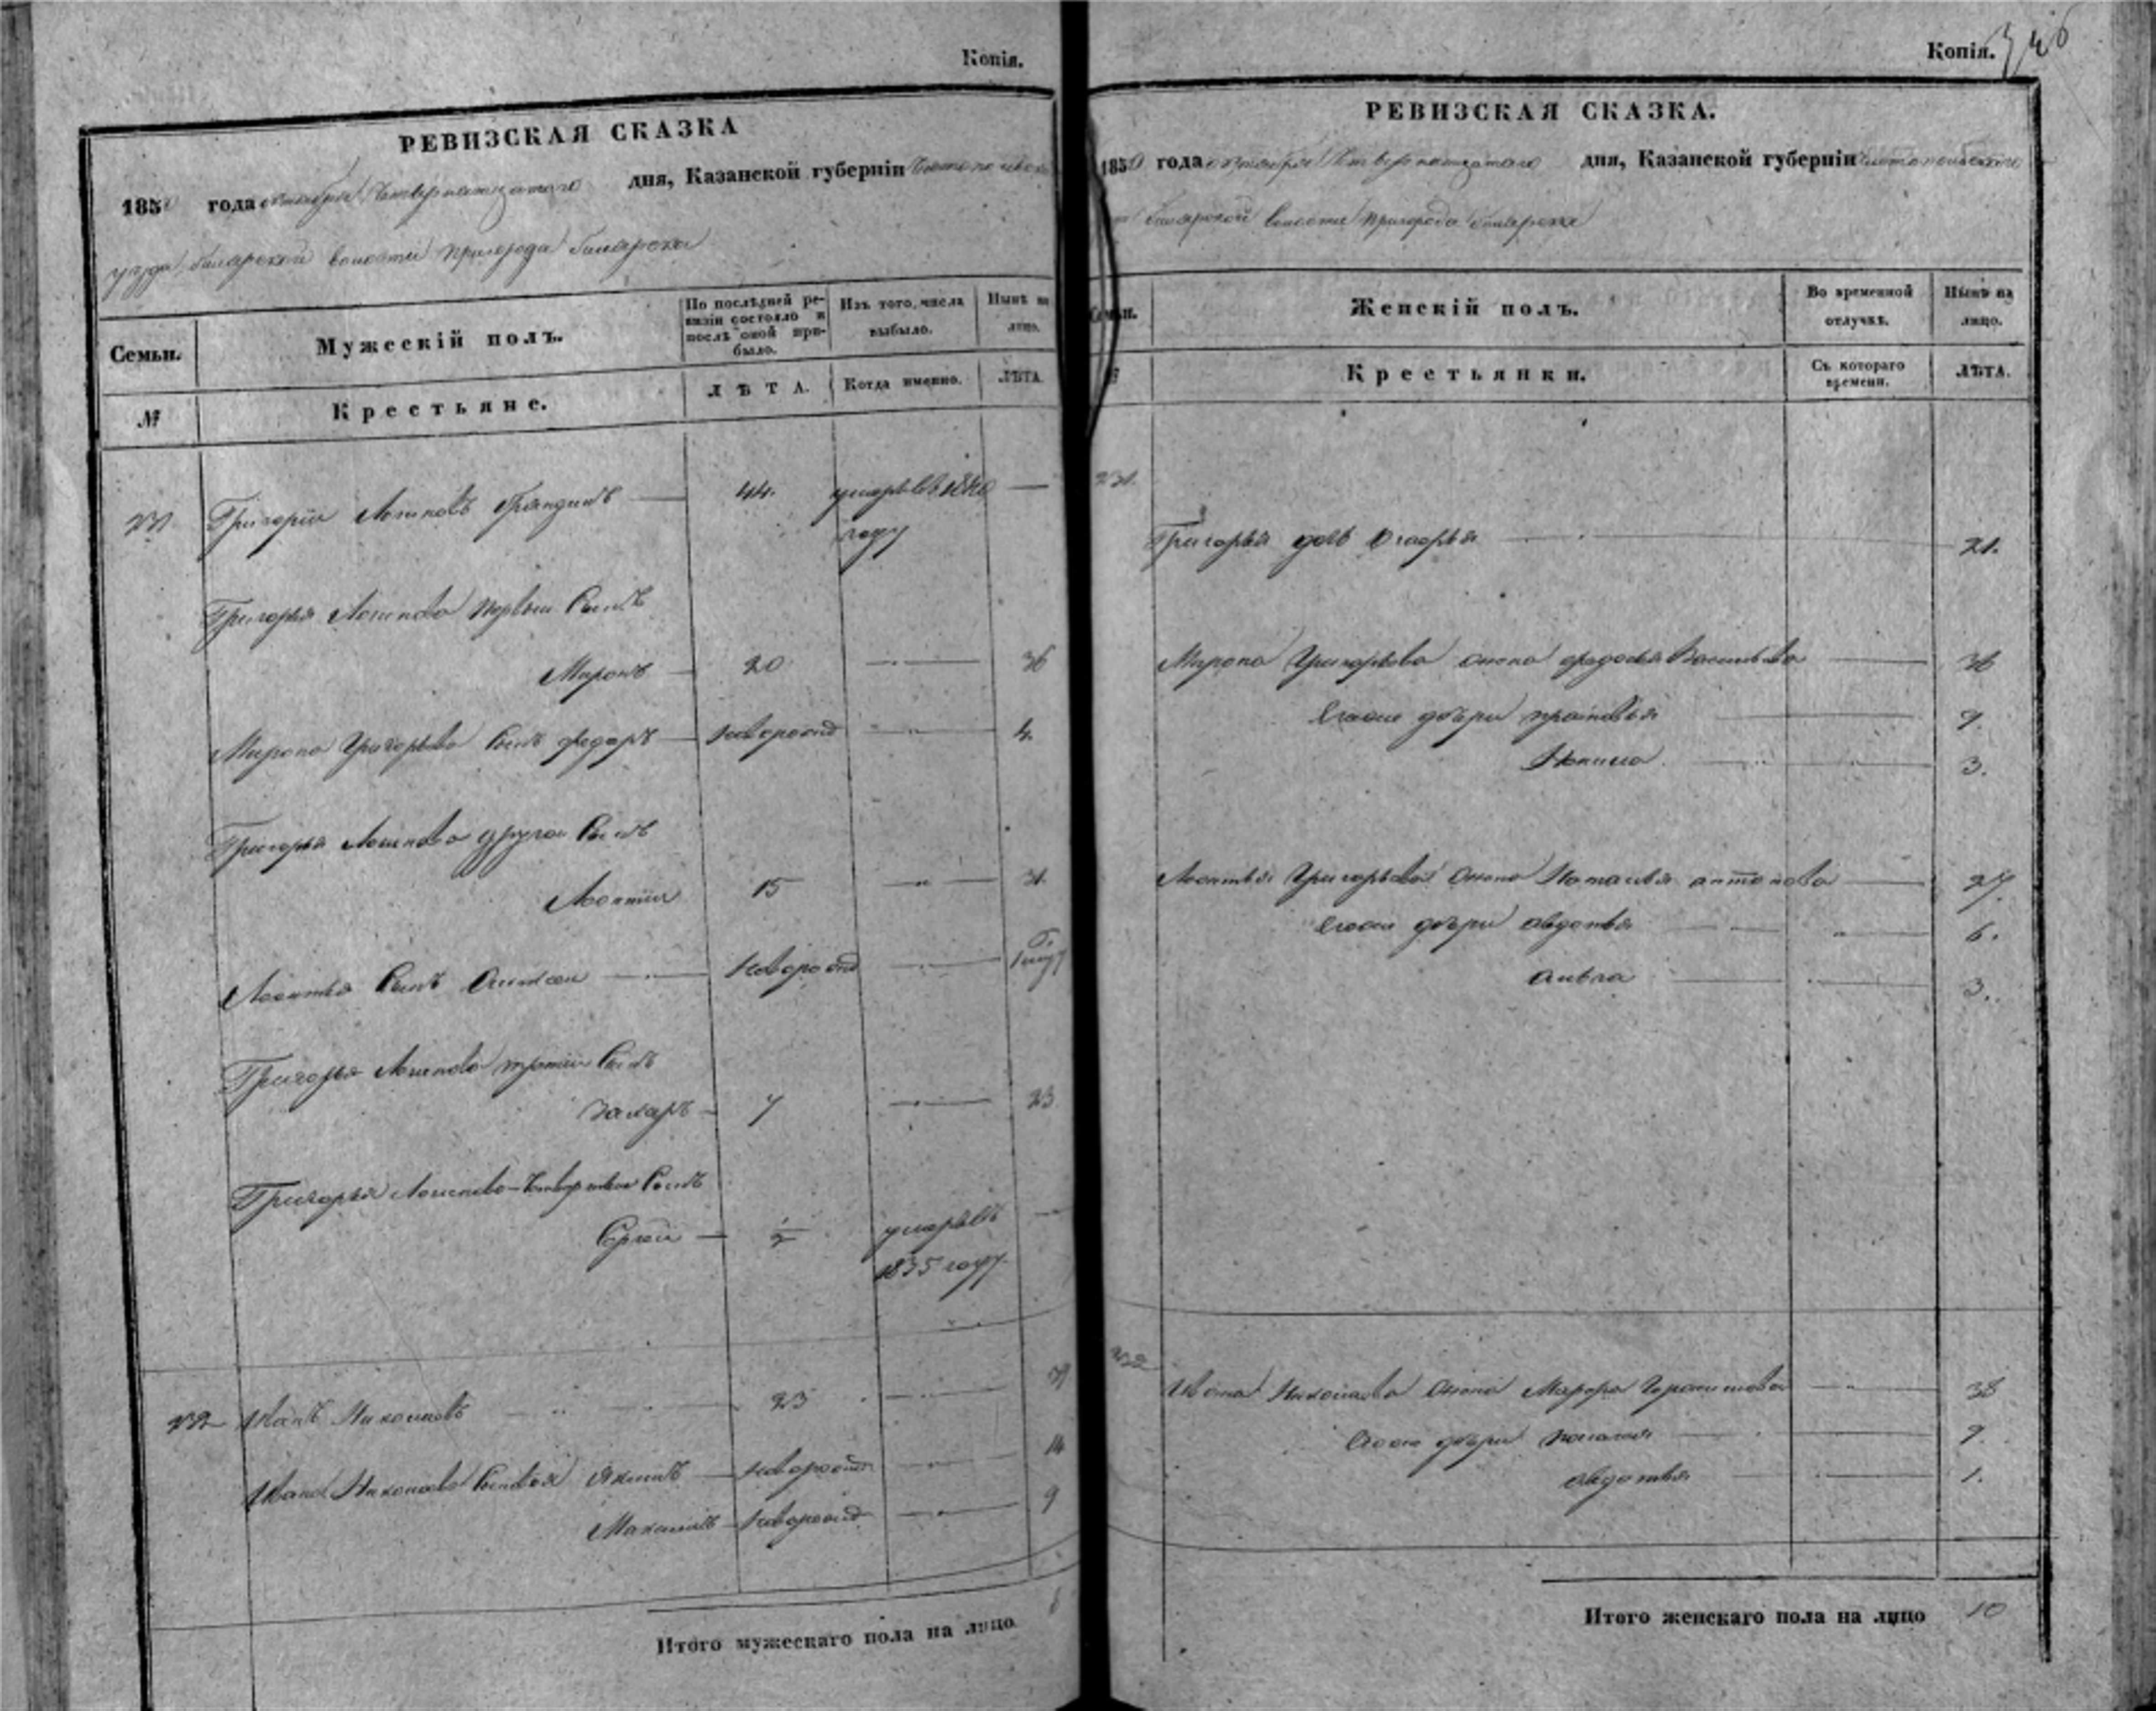 Копія.
РЕВИЗСКАЯ СКАЗКА
1850 года октября Четвертагонадцатаго дня, Казанской губерніи
уезда билярской волости пригорода билярска
Семьи.
Мужескій полъ.
По послѣдней ревизіи состояло и послѣ оной прибыло.
Изъ того числа выбыло.
Нынѣ на лицо.
№
Крестьяне.
ЛѢТА.
Когда именно.
ЛѢТА.
231 Григории Логиновъ 44. умеръ в 1840 —
году
Григорья Логинова первыи Сынъ
Миронъ — 20 — 36
Мирона Григорьева Сынъ федаръ — новорожд — 4.
Григорья Логинова другои Сынъ
Леонтии 15 — 31.
Леонтья Сынъ Алексеи — новорожд —
Григорья Логинова третии Сынъ
Захаръ — 7 — 23
Григорья Логинова Четвертыи Сынъ
Сергеи — 1/2 умеръ въ —
1835 году
232 Иванъ Николаевъ — 23 —
Ивана Николаева Сыновья Якимъ — новорожд — 14
Максимъ — новорожд — 9
Итого мужескаго пола на лицо 8
Копія.
РЕВИЗСКАЯ СКАЗКА.
1850 года октября дня, Казанской губерніи Чистопольскаго
билярской волости пригорода билярска
Семьи.
Женскій полъ.
Во временной отлучкѣ.
Нынѣ на лицо.
№
Крестьянки.
Съ котораго времени.
ЛѢТА.
231.
Григорья дочь — 21.
Мирона Григорьева жена федосья Васильева — 36
Ихъ дочери — 9.
3.
Леонтья Григорьева жена Наталья антонова — 27.
дочери авдотья — 6.
анна — 3.
232 Ивана Николаева жена Марфа — 38
дочери пелагея — 9.
авдотья — 1.
Итого женскаго пола на лицо 10